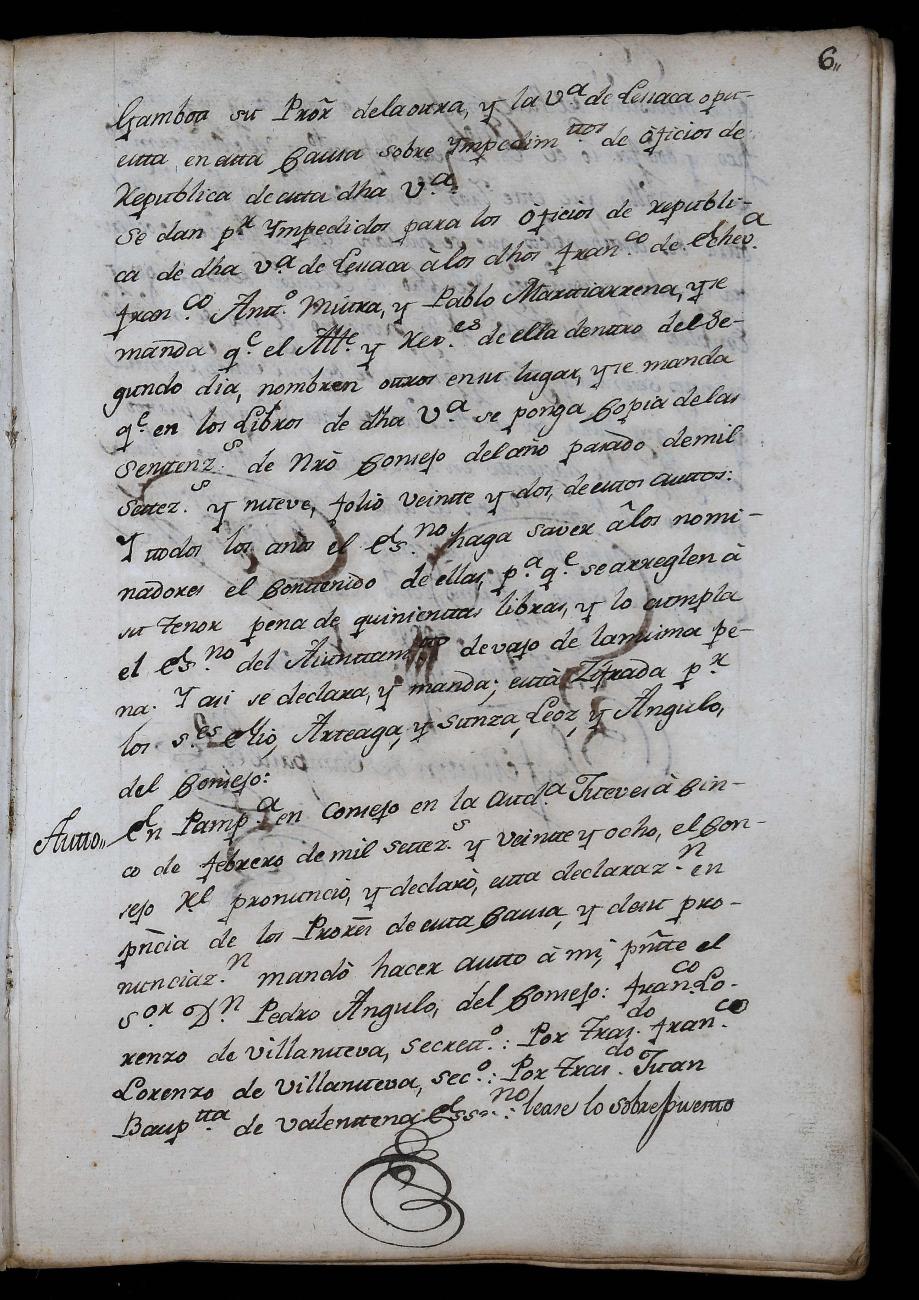 6
Gamboa su Pror de la otra, y la V.a de Lesaca opu-
esta en esta Causa sobre Ympedim.ttos de oficios de
Republica de esta dha V.a
Se dan p.r Ympedidos para los oficios de republi-
ca de dha V.a de Lesaca à los dhos Fran.co de Echev.a
Fran.co Antt.o Mittra, y Pablo Marttiarrena, y se
manda q.e el Alt.e y Rex.es de ella dentro del Se-
gundo dia, nombren otros en su lugar, y se manda
q.e en los Libros de dha V.a se ponga Copia de las
Sentenz.s de Nrô Consejo del año pasado de mil
Settez.s y nueve, folio veintte y dos, de estos auttos:
Y ttodos los años el Es.no haga saver â los nomi-
nadores el Conttenido de ellas, p.a q.e se arreglen à
su tenor pena de quinienttas libras, y lo cumpla
el Es.no del Aiunttam.tto devajo de la misma pe-
na. Y asi se declara, y manda; està Zifrada p.r
los S.es Elio, Arteaga, y Sunza, Leoz, y Angulo,
del Consejo:
Autto,, En Pamp.a en Consejo en la Aud.a Jueves à cin-
co de febrero de mil Settez.s y veintte y ocho, el Con-
sejo Rl pronunciò, y declarò, esta declaraz.n en
pñcia de los Prores de esta Causa, y de su pro-
nunciaz.n mandò hacer autto à mi, pñtte el
S.or D.n Pedro Angulo, del Consejo: Fran.co Lo-
renzo de Villanueva, Secrett.o: Por tras.do Fran.co
Lorenzo de Villanueva, Sec.o: Por tras.do Juan
Baup.tta de Valenttena Ess.no: lease lo sobrepuestto